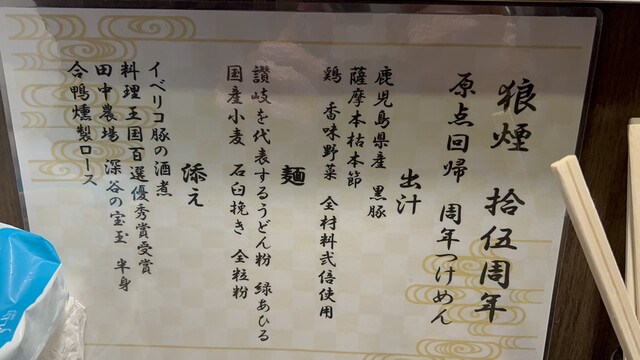 狼煙 拾伍周年
原点回帰 周年つけめん
出汁
鹿児島県産 黒豚
薩摩本枯本節
鶏 香味野菜 全材料弐倍使用
麺
讃岐を代表するうどん粉 緑あひる
国産小麦 石臼挽き 全粒粉
添え
イベリコ豚の酒煮
料理王国百選優秀賞受賞
田中農場 深谷の宝玉 半身
合鴨燻製ロース